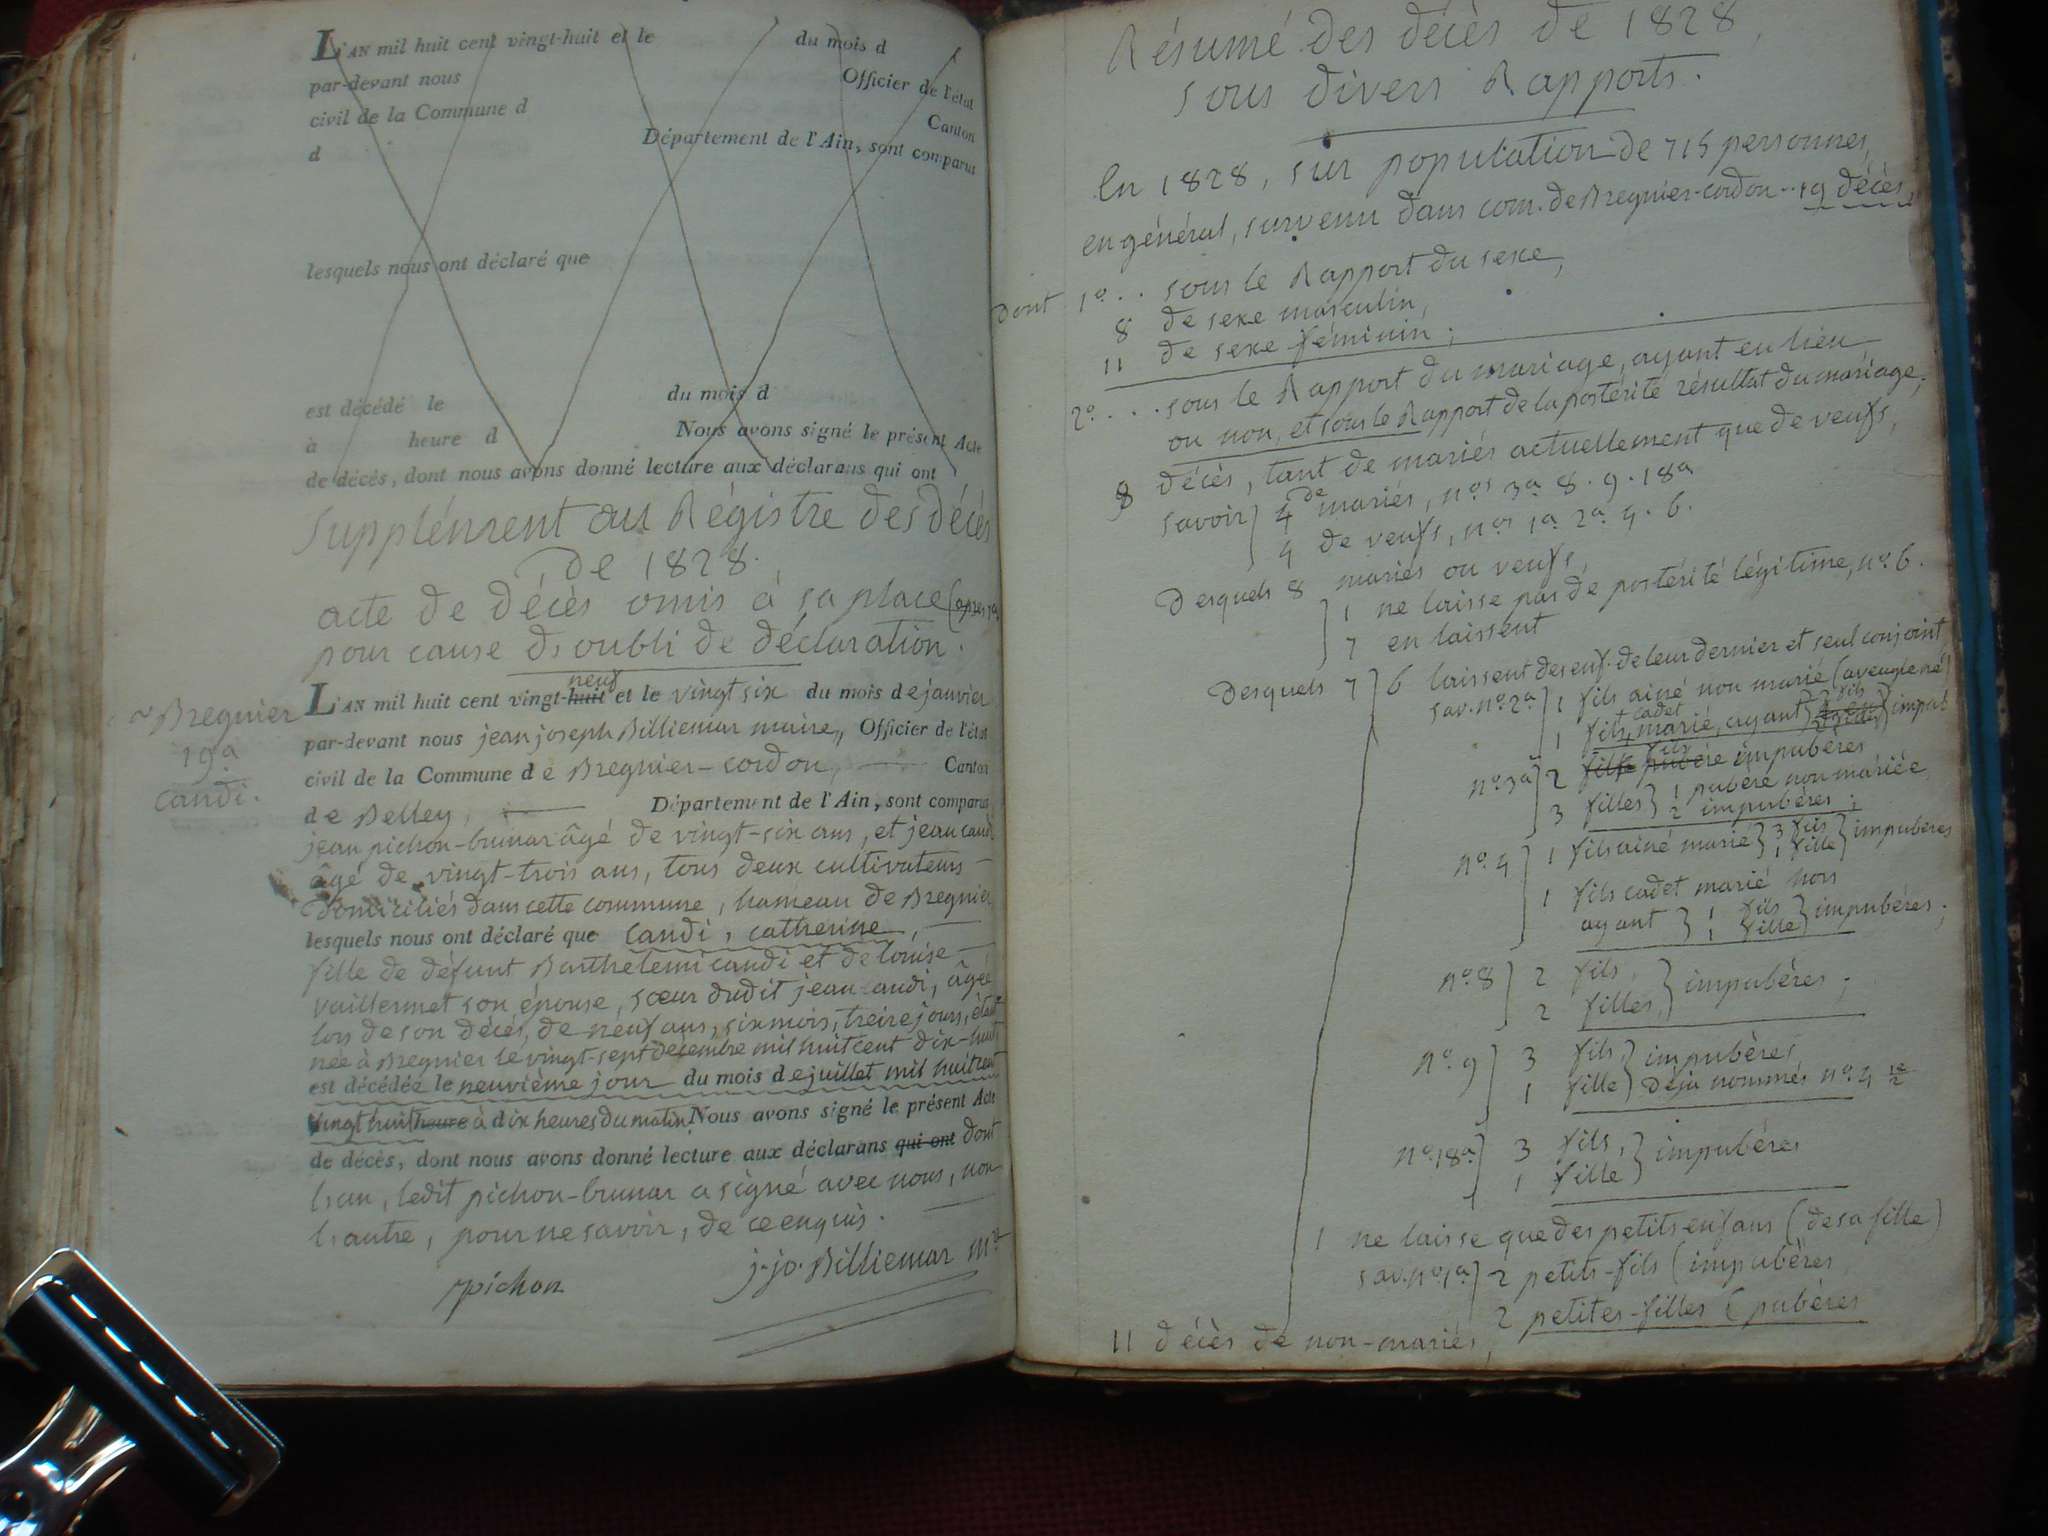 L'AN mil huit cent vingt-huit et le du mois d
par-devant nous Officier de l'état
civil de la Commune d Canton
d Département de l'Ain, sont comparus
lesquels nous ont déclaré que
est décédé le du mois d
à heure d Nous avons signé le présent Acte
de décès, dont nous avons donné lecture aux déclarans qui ont
Supplément au Régistre des décès
de 1828.
acte de décès omis à sa place (après
pour cause d'oubli de déclaration.
Bregnier
19a
Candi.
L'AN mil huit cent vingt-huit neuf et le vingt six du mois de janvier
par-devant nous jean joseph Billiemar maire, Officier de l'état
civil de la Commune de Bregnier-cordon, Canton
de Belley, Département de l'Ain, sont comparus
jean pichon-bunar âgé de vingt-six ans, et jean candi
âgé de vingt-trois ans, tous deux cultivateurs
domiciliés dans cette commune, hameau de Bregnier,
lesquels nous ont déclaré que Candi, catherine,
fille de défunt Barthelemi candi et de louise
vaillermet son épouse, sœur dudit jean candi, âgée
lors de son décès, de neuf ans, six mois, treize jours, étant
née à Bregnier le vingt-sept décembre mil huit cent dix-huit
est décédée le neuvième jour du mois de juillet mil huit cent
vingt huit heure à dix heures du matin. Nous avons signé le présent Acte
de décès, dont nous avons donné lecture aux déclarans qui ont dont
l'un, ledit pichon-bunar a signé avec nous, non
l'autre, pour ne savoir, de ce enquis.
pichon j. jo. Billiemar m.re
Résumé des décès de 1828,
sous divers Rapports.
En 1828, sur population de 715 personnes,
en général, survenu dans com. de Bregnier-cordon.. 19 décès,
dont 1o.. sous le Rapport du sexe,
8 de sexe masculin,
11 de sexe féminin;
2o.... sous le Rapport du mariage, ayant eu lieu
ou non, et sous le Rapport de la postérité résultat du mariage,
8 décès, tant de mariés actuellement que de veufs,
savoir 4 de mariés, nos 3a. 8. 9. 18a
4 de veufs, nos 1a 2a. 4. 6.
Desquels 8 mariés ou veufs,
1 ne laisse pas de postérité légitime, no. 6.
7 en laissent
Desquels 7 6 laissent des enf. de leur dernier et seul conjoint,
sav. no. 2a 1 fils ainé non marié (aveugle né)
1 fils cadet marié, ayant fils impub
no. 3a 2 fils pubère fils impubères
3 filles 1 pubère non mariée
2 impubères;
no. 4 1 fils ainé marié 3 fils 1 fille impubères
1 fils cadet marié non
ayant 1 fils 1 fille impubères;
no. 8 2 fils,
2 filles, impubères;
no. 9 3 fils, impubères,
1 fille déja nommés no. 4
no. 18a. 3 fils,
1 fille impubères
1 ne laisse que des petits enfans (de sa fille)
sav. no. 1a. 2 petits-fils (impubères
2 petites-filles (pubères
11 décès de non-mariés,